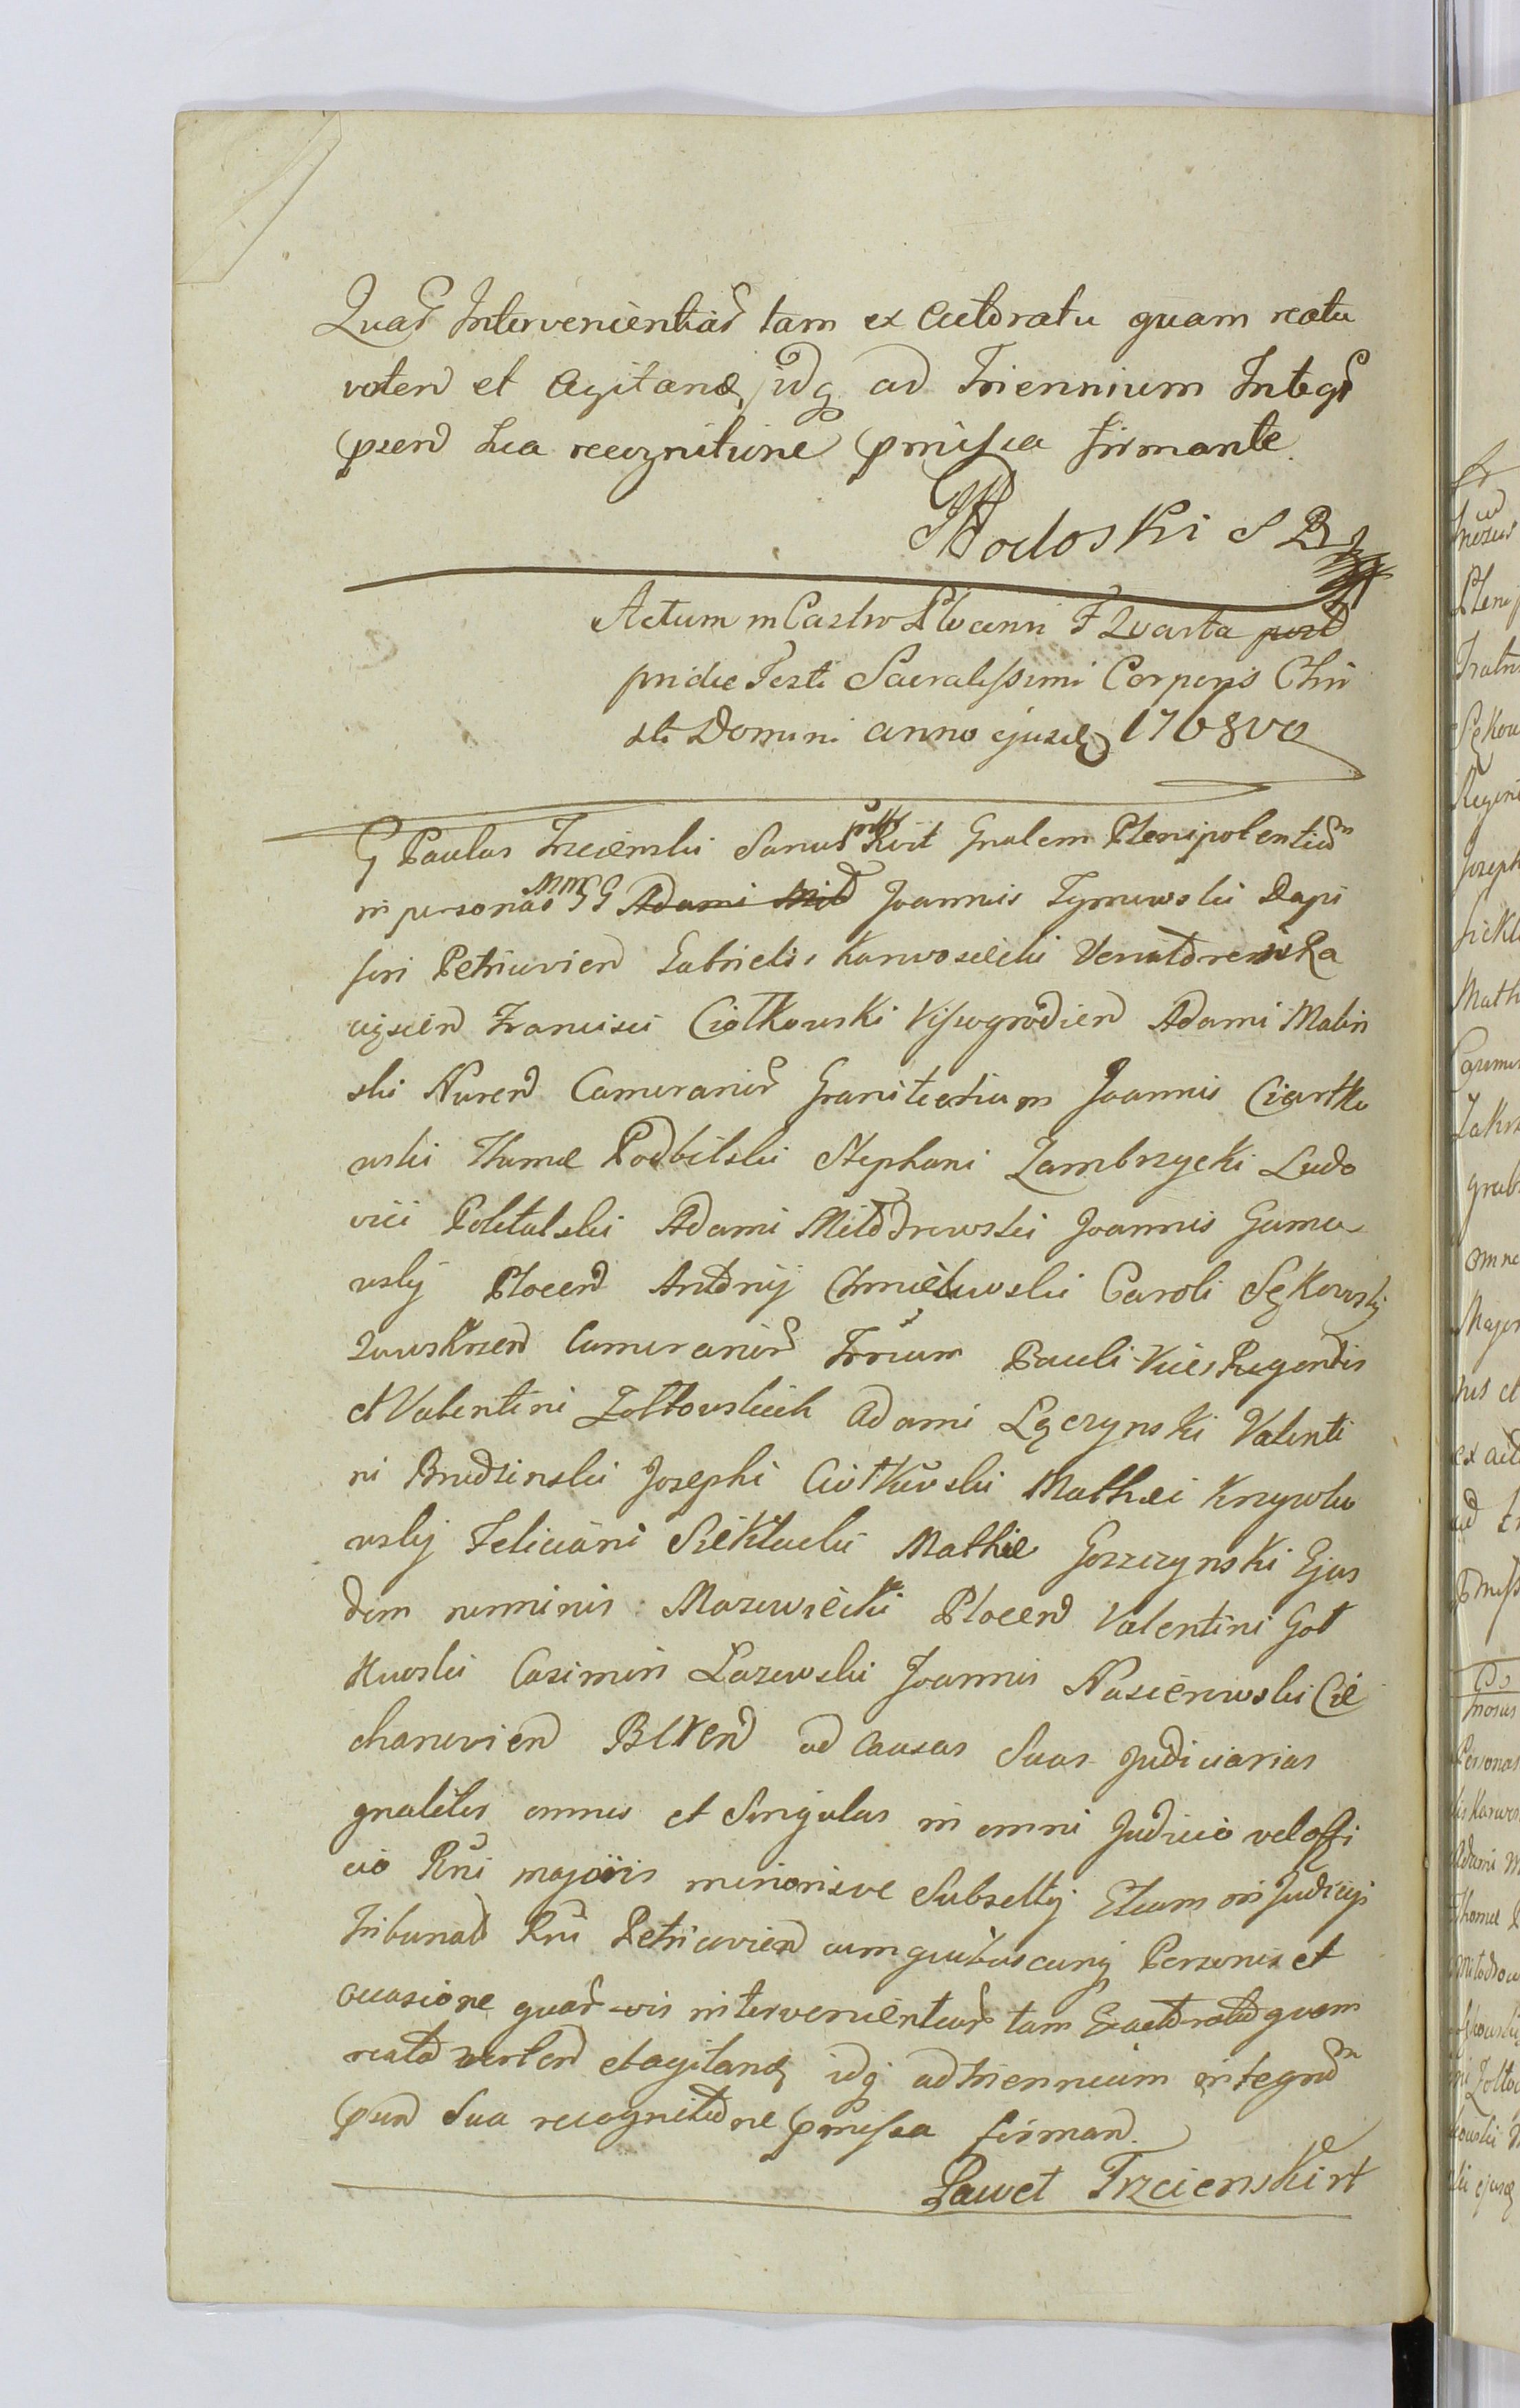 Quar Intervenientiar tam ex Actoratu quam reatu
verten et Agitan idq ad Triennium Integr
pnen sua recognitione pmissa firmante.
Podoski S B
Actum in Castro Plocenn F Quarta post
pridie Festi Sacratissimi Corporis Chri
sti Domini anno ejusd 1768vo
G Paulus Trzcienski Sanus mtte Kvit Gnalem Plenipotentiam
in personas MM GG Adami Mił Joannis Tymowski Dapi
feri Petricovien Gabrielis Karwosiecki Venatoris Ra
ciąscen Francisci Ciołkowski Vissogrodien Adami Malin
ski Nuren Camerarior Granitierium Joannis Ciartko
wski Thomæ Podbilski Stephani Zambrzycki Ludo
vici Połtalski Adami Miłodrowski Joannis Gumo
wskij Plocen Antonij Chmielewski Caroli Sękowskij
Zawskrzen Camerarior Frum Pauli Vices Regentis
et Valentini Zołtowskich Adami Lączynski Valenti
ni Brudzinski Josephi Ciołkowski Mathei Krzywko
wskij Feliciani Siekłucki Mathiæ Gorzczynski Ejus
dem nominis Mazowiecki Plocen Valentini Goł
kowski Casimiri Lazowski Joannis Nasierowski Cie
chanovien BCXen ad Causas Suas Judiciarias
gnaliter omnes et Singulas in omni Judicio vel offi
cio Rni majoris minorisve Subsellij Etiam in Judicijs
Tribunal Rni Petricovien cum quibuscunq Personis et
occasione quar-vis intervenientiar tam Exactoratu quam
reatu verten et agitan idq ad triennium integrum
pnen Sua recognitione pmissa firman.
Paweł Trzcienski rt